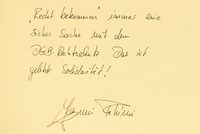 "Recht bekommen" immer eine
sichere Sache mit dem
DGB-Rechtsschutz. Das ist
gelebte Solidarität!